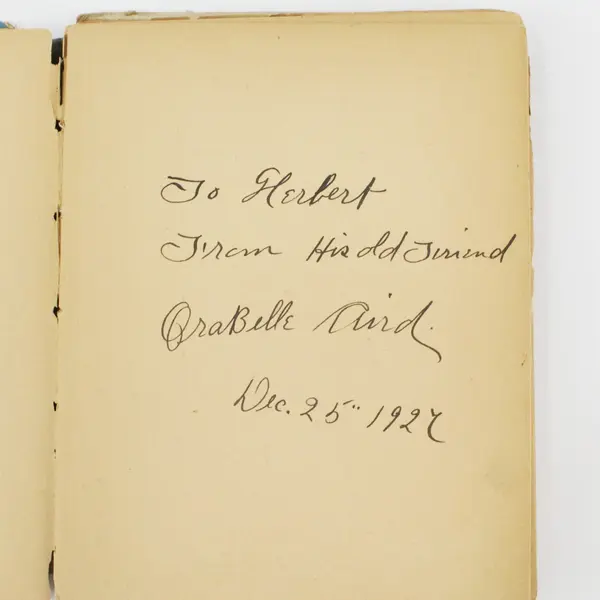 To Herbert
From His old Friend
OraBelle Aird.
Dec. 25" 1927